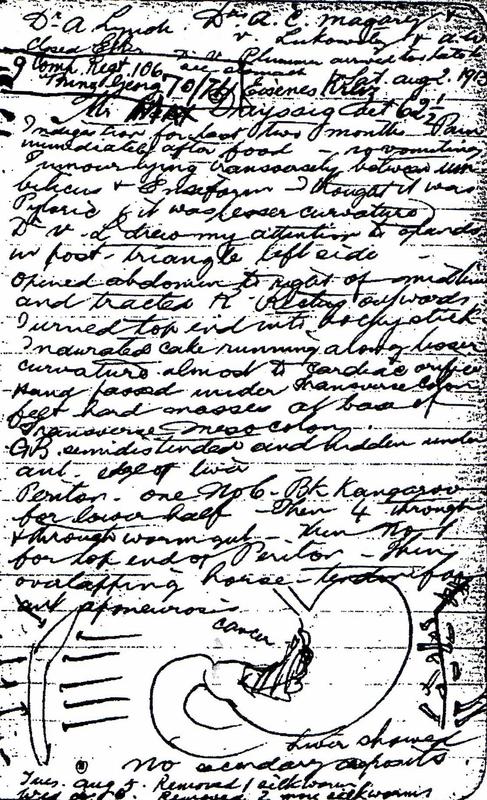 Dr A. Lynch. Drs A. E. Magarey &
v. Lukowitz &
Closed Ether Dr V. Plummer arrived too late to
see
9 Comp. Regt. 106 70/71 Sat Aug 2. 1913
Prinz Georg Eisenes Kreuz
Mr Drayssig aet 62½
Indigestion for last two months - Pain
immediately after food - no vomiting
Tumour lying transversely between um
bilicus & Ensiform - Thought it was
Pyloric (it was lesser curvature)
Dr v. L drew my attention to glands
in post. triangle left side -
Opened abdomen to right of midline
and tracted R. Rectus outwards
Turned top end into hockey stick
Indurated cake running along lesser
curvature almost to cardiac orifice
Hand passed under Transverse colon
felt hard masses at base of
Transverse mesocolon.
G.B. semidistended and hidden under
ant. edge of liver
Periton. one No 6. Bk Kangaroo
for lower half - Then 4 through
& through worm gut - then No 1
for top end of Periton - Then
overlapping horse-tendon for
ant aponeurosis
cancer
Liver showed
No secondary deposits
Tues Aug 5. Removed 1 silkworm
Wed Removed 2 more silkworms